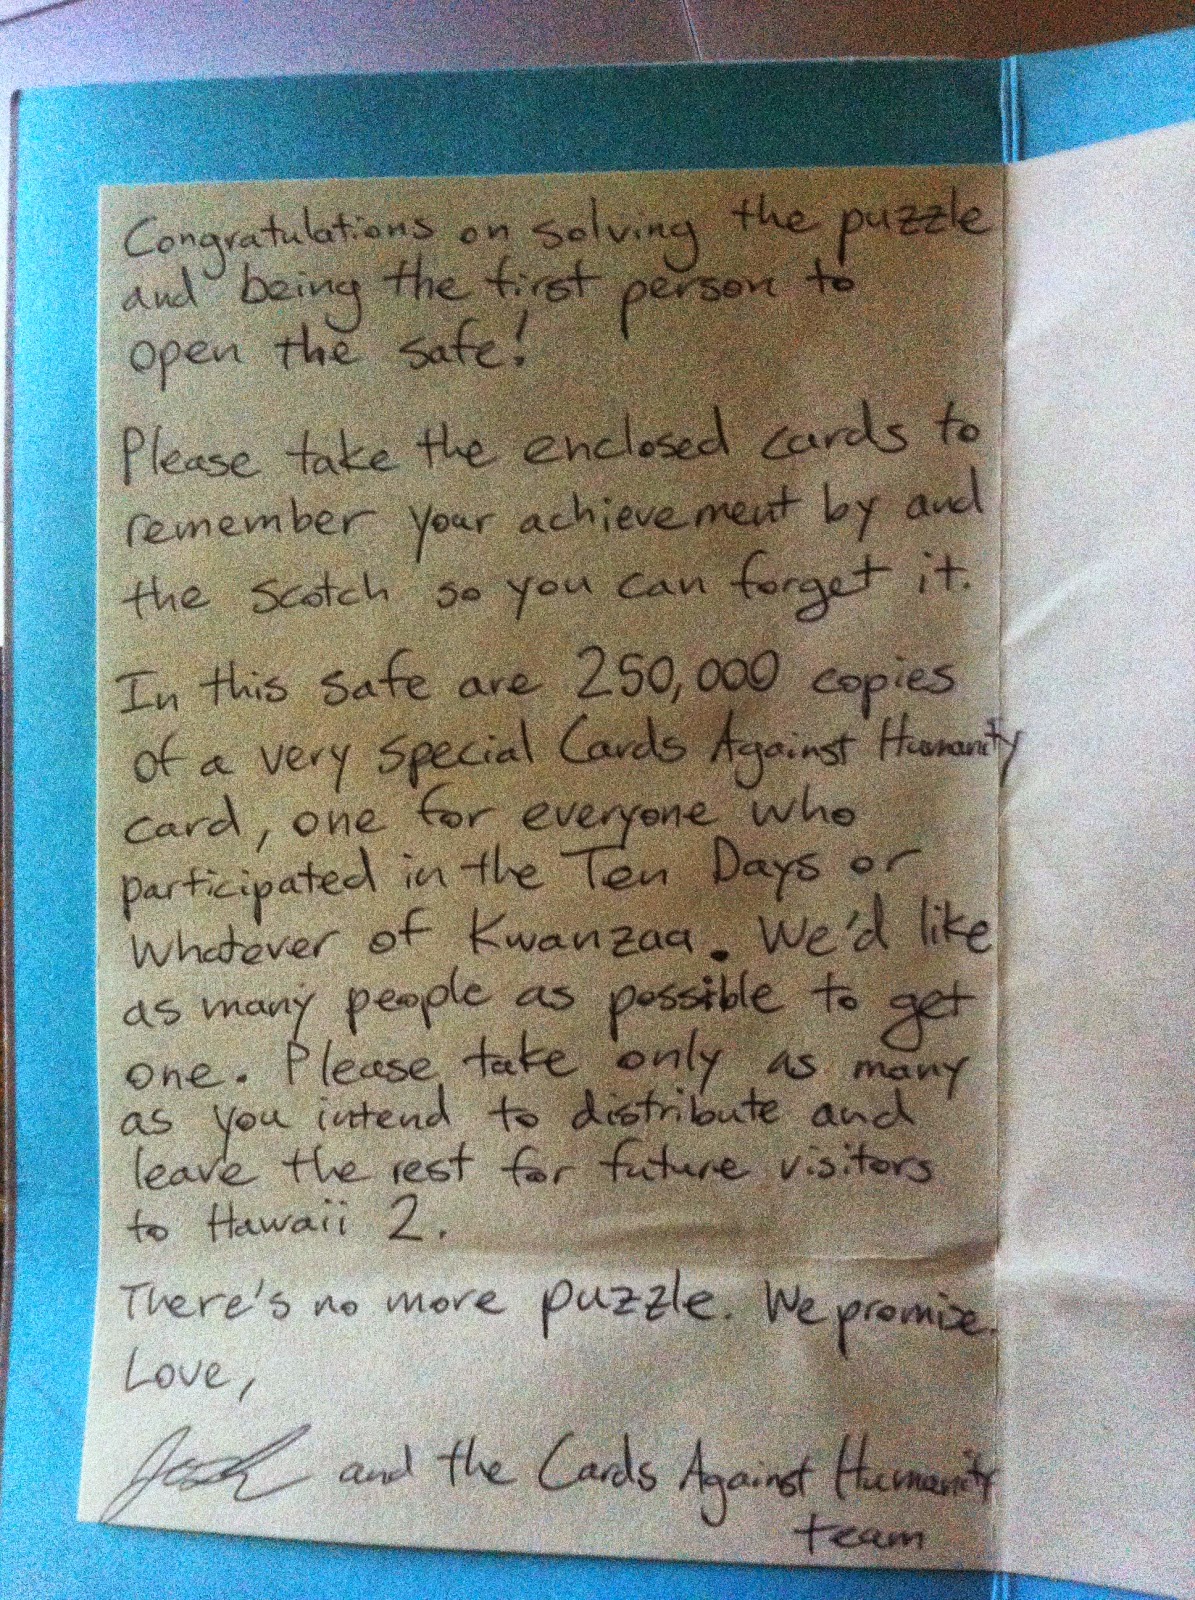 Congratulations on solving the puzzle
and being the first person to
open the safe!
Please take the enclosed cards to
remember your achievement by and
the scotch so you can forget it.
In this safe are 250,000 copies
of a very special Cards Against Humanity
card, one for everyone who
participated in the Ten Days or
Whatever of Kwanzaa. We'd like
as many people as possible to get
one. Please take only as many
as you intend to distribute and
leave the rest for future visitors
to Hawaii 2.
There's no more puzzle. We promise.
Love,
Josh and the Cards Against Humanity
team